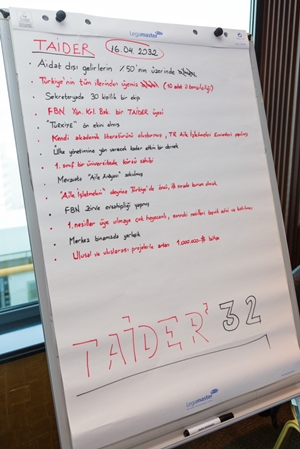 Legamaster
TAIDER 16.04.2032
• Aidat dışı gelirlerin %50'nin üzerinde
• Türkiye'nin tüm illerinden üyemiz (10 adet il temsilciliği)
• Sekreteryada 30 kişilik bir ekip
• FBN Yön. Krl. Bşk. bir TAİDER üyesi
• "Türkiye" ön ekini almış
• Kendi akademik literatürünü oluşturmuş, TR Aile İşletmeleri Envanteri yapılmış
• Ülke yönetimine yön verecek kadar etkin bir dernek
• 1. sınıf bir üniversitede kürsü sahibi
• Mevzuata "Aile Anayasası" sokulmuş
• "Aile İşletmeleri" deyince Türkiye'de ünlü, ilk sırada kurum olarak
• FBN Zirve evsahipliği yapmış
• 1. nesiller üye olmaya çok heyecanlı, sonraki nesilleri teşvik edici ve katılımcı
• Merkez binamızda yerleşik
• Ulusal ve uluslarası projelerle artan 1.000.000 ₺ bütçe
TAİDER' 32
Legamaster